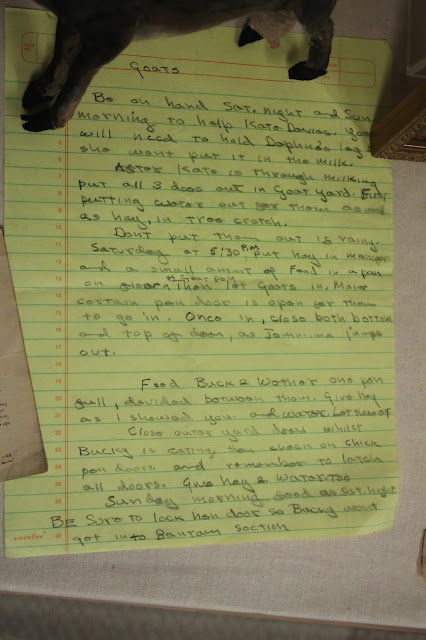 Goats
Be on hand Sat. night and Sun
morning to help Kate You
will need to hold Daphne's leg
she wont put it in the milk.
After Kate is through milking
put all 3 does out in Goat yard. First
putting water out for them as well
as hay, in tree crotch.
Dont put them out if rainy.
Saturday at 5:30 P.M. put hay in manger
and a small amnt of Food in a pan
on floor, of Goat pen Then let Goats in. Make
certain pen door is open for them
to go in. Once in, close both bottom
and top of door, as Jemima jumps
out.
Food Buck & Wether one pan
full, devided between them. Give hay
as I showed you and water.
Close outer yard door whilst
Bucky is eating then check on chick
pen doors. and remember to latch
all doors. Give hay & Water too
Sunday morning food as Sat. night
BE Sure to lock hen door so Bucky wont
get into Bantam section